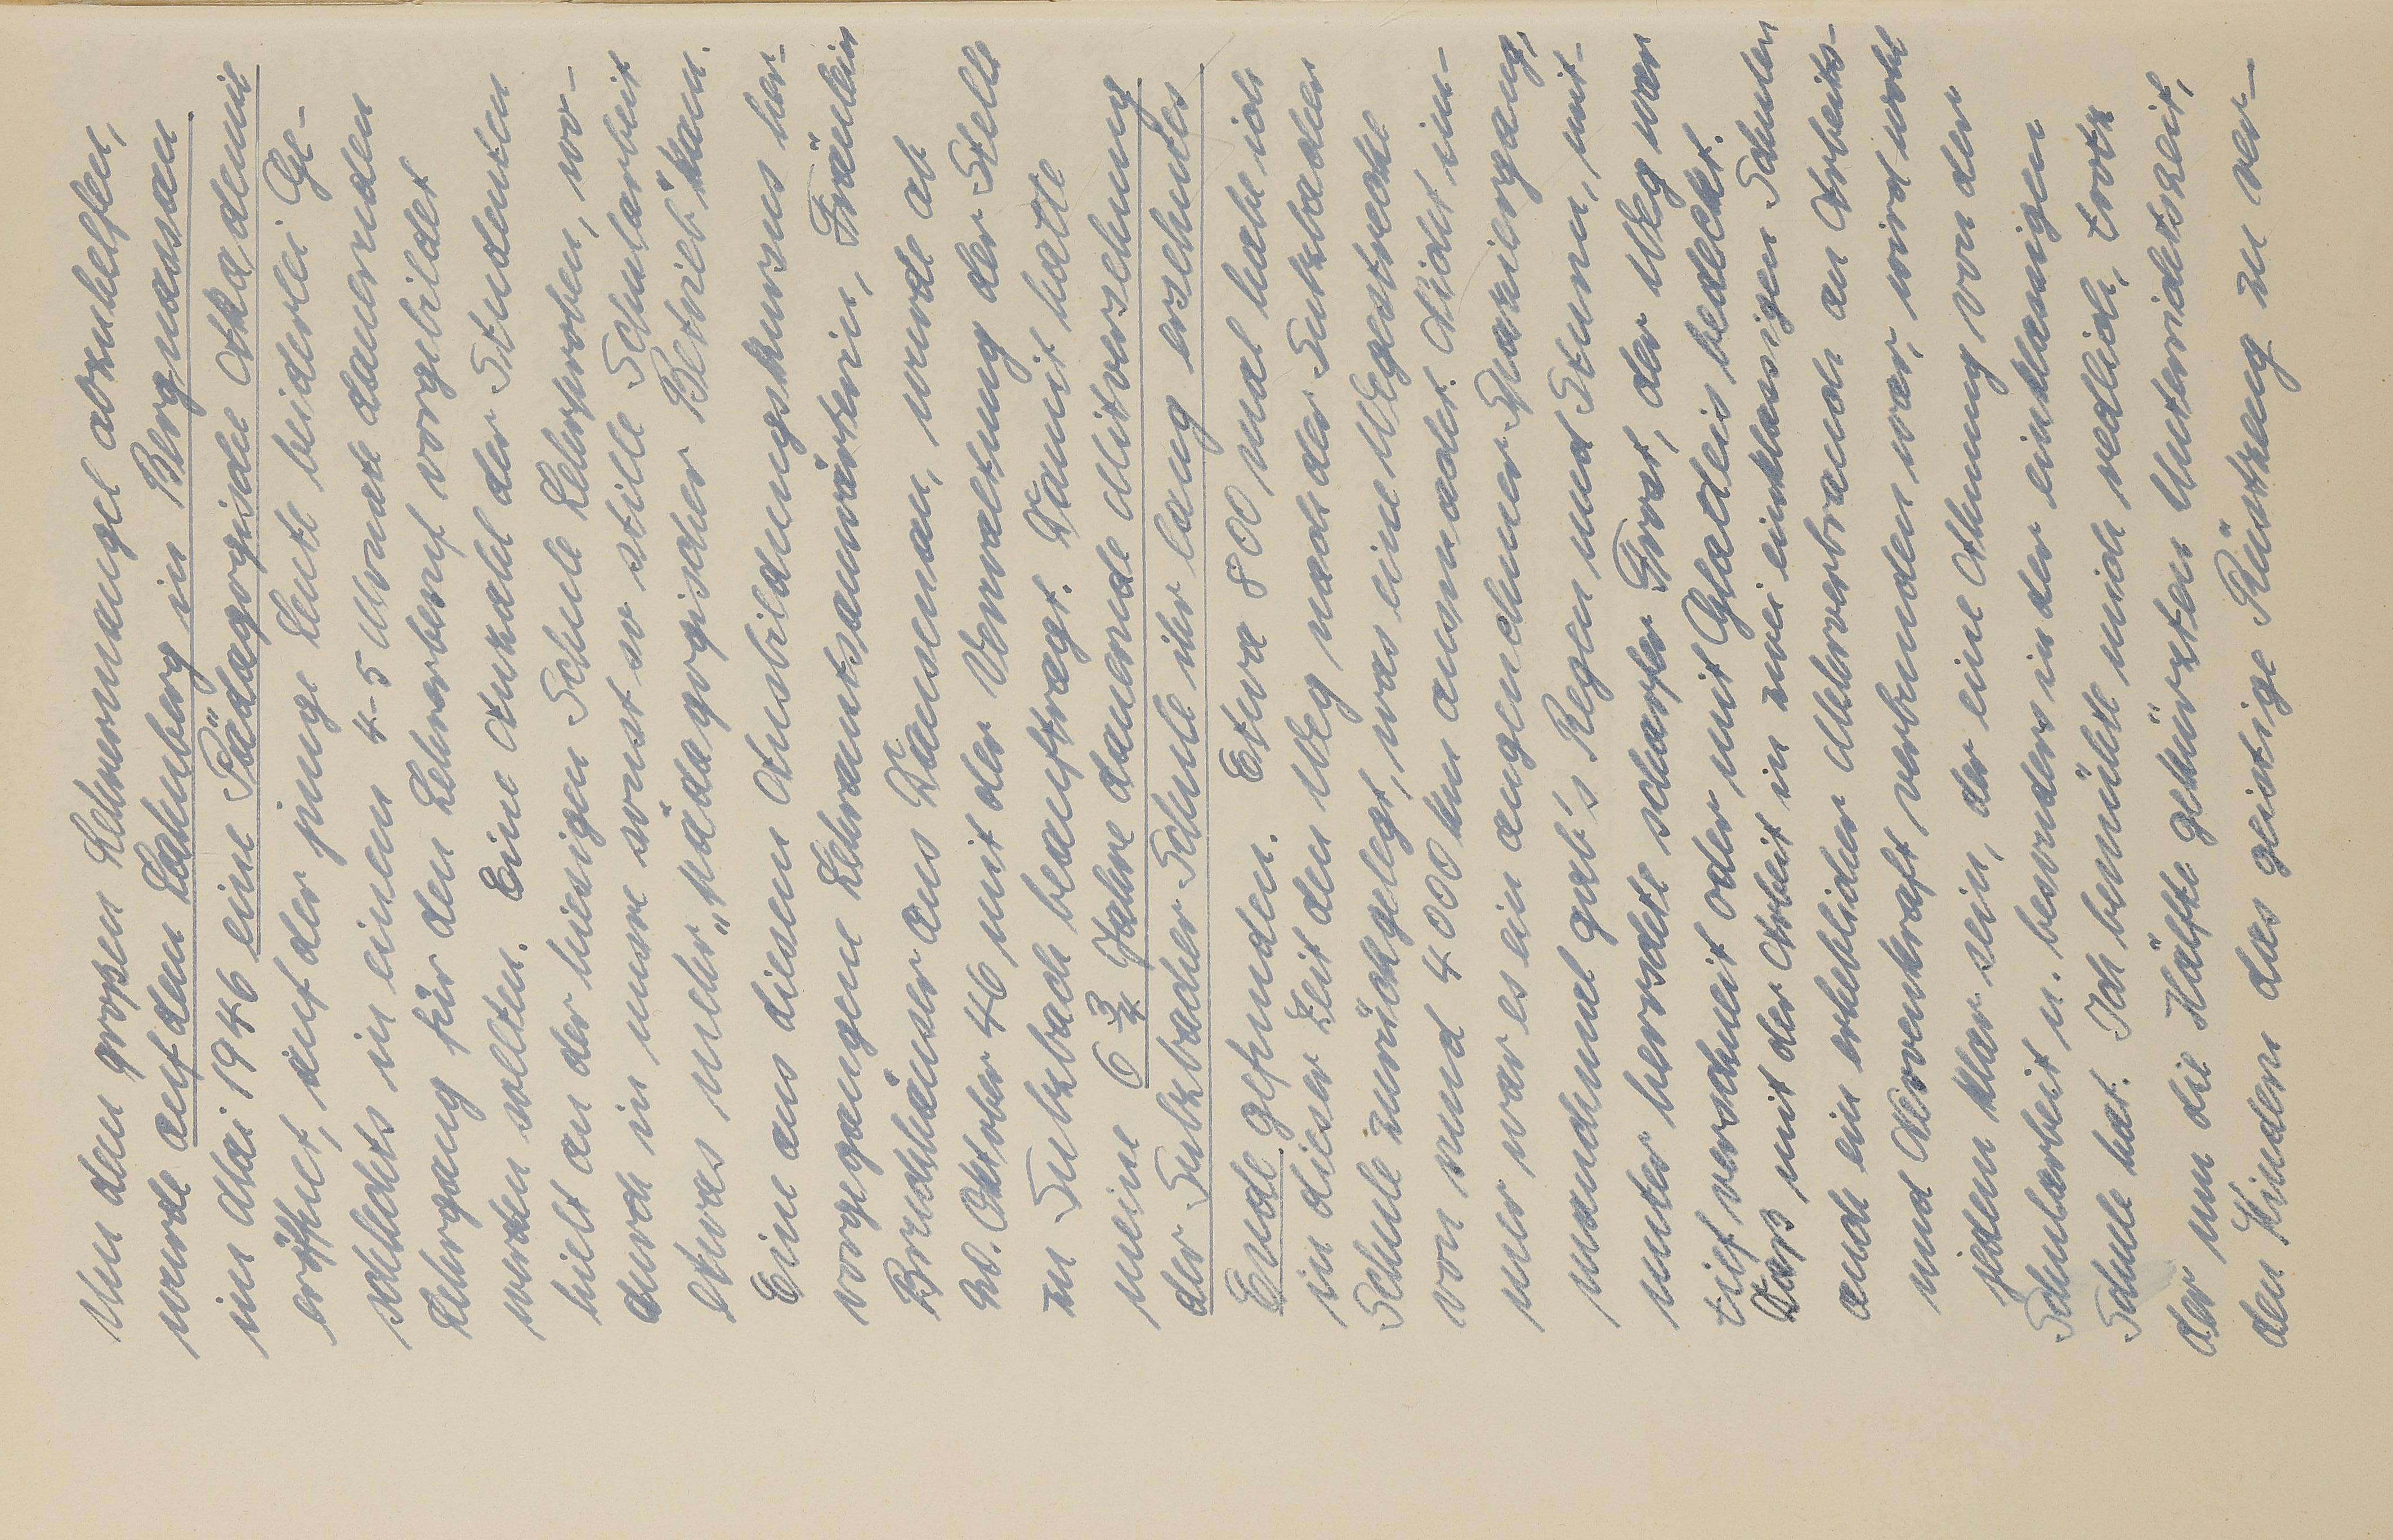 Um dem großen Lehrermangel abzuhelfen,
wurde auf dem Lahnberg in Bergnassau
im Mai 1946 eine Pädagogische Akademie
eröffnet, auf der junge Leute beiderlei Ge-
schlechts in einem 4-5 Monate dauernden
Lehrgang für den Lehrerberuf vorgebildet
werden sollten. Eine Anzahl der Studenten
hielt an der hiesigen Schule Lehrproben, wo-
durch in unsre sonst so stille Schularbeit
etwas mehr „pädagogischer Betrieb" kam.
Eine aus diesem Ausbildungskursus her-
vorgegangene Lehramtsanwärterin, Fräulein
Bruchhäuser aus Dausenau, wurde ab
20. Oktober 46 mit der Verwaltung der Stelle
zu Sulzbach beauftragt. Damit hatte
meine 6 3/4 Jahre dauernde Mitversehung
der Sulzbacher Schule ihr lang ersehntes
Ende gefunden. Etwa 800 mal habe ich
in dieser Zeit den Weg nach der Sulzbacher
Schule zurückgelegt, was eine Wegestrecke
von rund 4000 km ausmacht. Nicht im-
mer war es ein angenehmer Spaziergang,
manchmal gab's Regen und Sturm, mit-
unter herrschte scharfer Frost, der Weg war
tief verschneit oder mit Glatteis bedeckt.
Daß mit der Arbeit in zwei einklassigen Schulen
auch ein erheblicher Mehrverbrauch an Arbeits-
und Nervenkraft verbunden war, wird wohl
jedem klar sein, der eine Ahnung von der
Schularbeit u. besonders in der einklassigen
Schule hat. Ich bemühte mich redlich, trotz
der um die Hälfte gekürzten Unterrichtszeit,
den Kindern das geistige Rüstzeug zu ver-